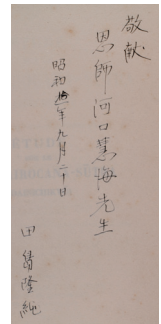 敬献
恩師河口慧海先生
昭和　年九月二十日
田　隆純